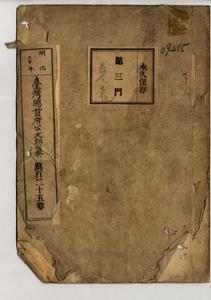 永久保存
第三門
明治
年
臺灣總督府公文類纂
第百二十五卷
09215